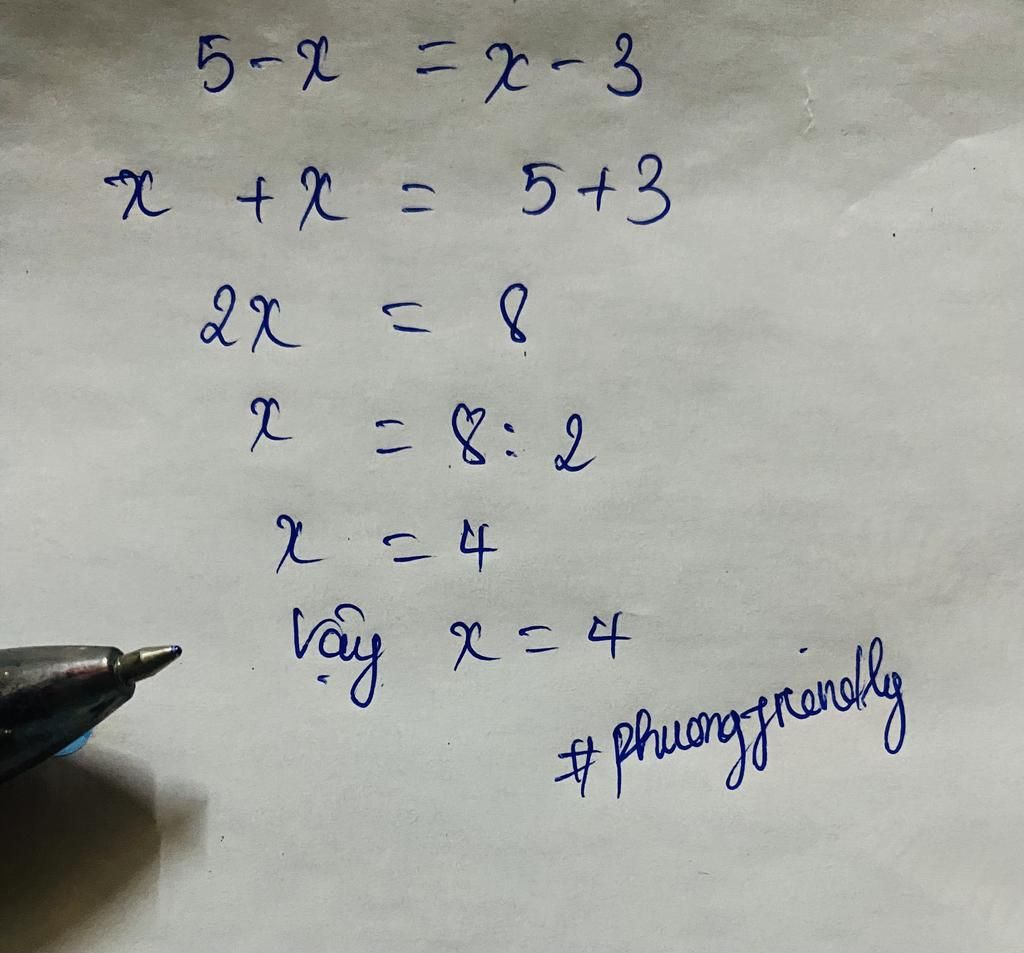 5 - x = x - 3
x + x = 5 + 3
2x = 8
x = 8 : 2
x = 4
Vậy x = 4
#phuongfriendly